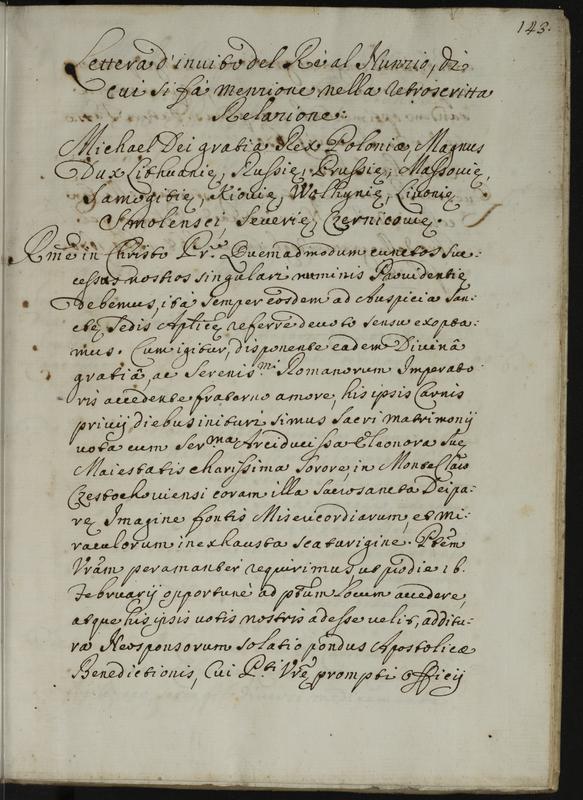 143.
Lettera d'invito del Ré al Nunzio, di
cui si fà menzione nella retroscritta
Relazione.
Michael Dei gratiâ Rex Poloniæ, Magnus
Dux Lithuanię, Russię, Prussię, Massouię,
Samogitię, Kiouię, Wolhynię, Liuonię
Smolensci, Seuerię, Czernicouię.
Rme in Christo Pr. Quemadmodum cunctos suc-
cessus nostros singulari numinis Prouidentię
debemus, ità semper eosdem ad Auspicia San-
ctę Sedis Aplicę referre deuoto sensu exopta-
mus. Cum igitur, disponente eadem Diuinâ
gratiâ, ac Serenis.mi Romanorum Imperato-
ris accedente fraterno amore, his ipsis Carnis
priuij diebus inituri simus Sacri Matrimonij
uota cum Ser.ma Arciducissa Eleonora Suę
Maiestatis charissima sorore, in Monte Claro
Czestochouiensi coram illa Sacrosancta Deipa-
rę Imagine fontis Misericordiarum, et mi-
raculorum inexhausta scaturigine. Ptem
Vram peramanter requirimus ut pro die 16.
Februarij opportunè ad ptum Locum accedere,
atque his ipsis uotis nostris adesse uelit, additu-
ra Neosponsorum solatio pondus Apostolicæ
Benedictionis, Cui Pti Vrę prompti Officij